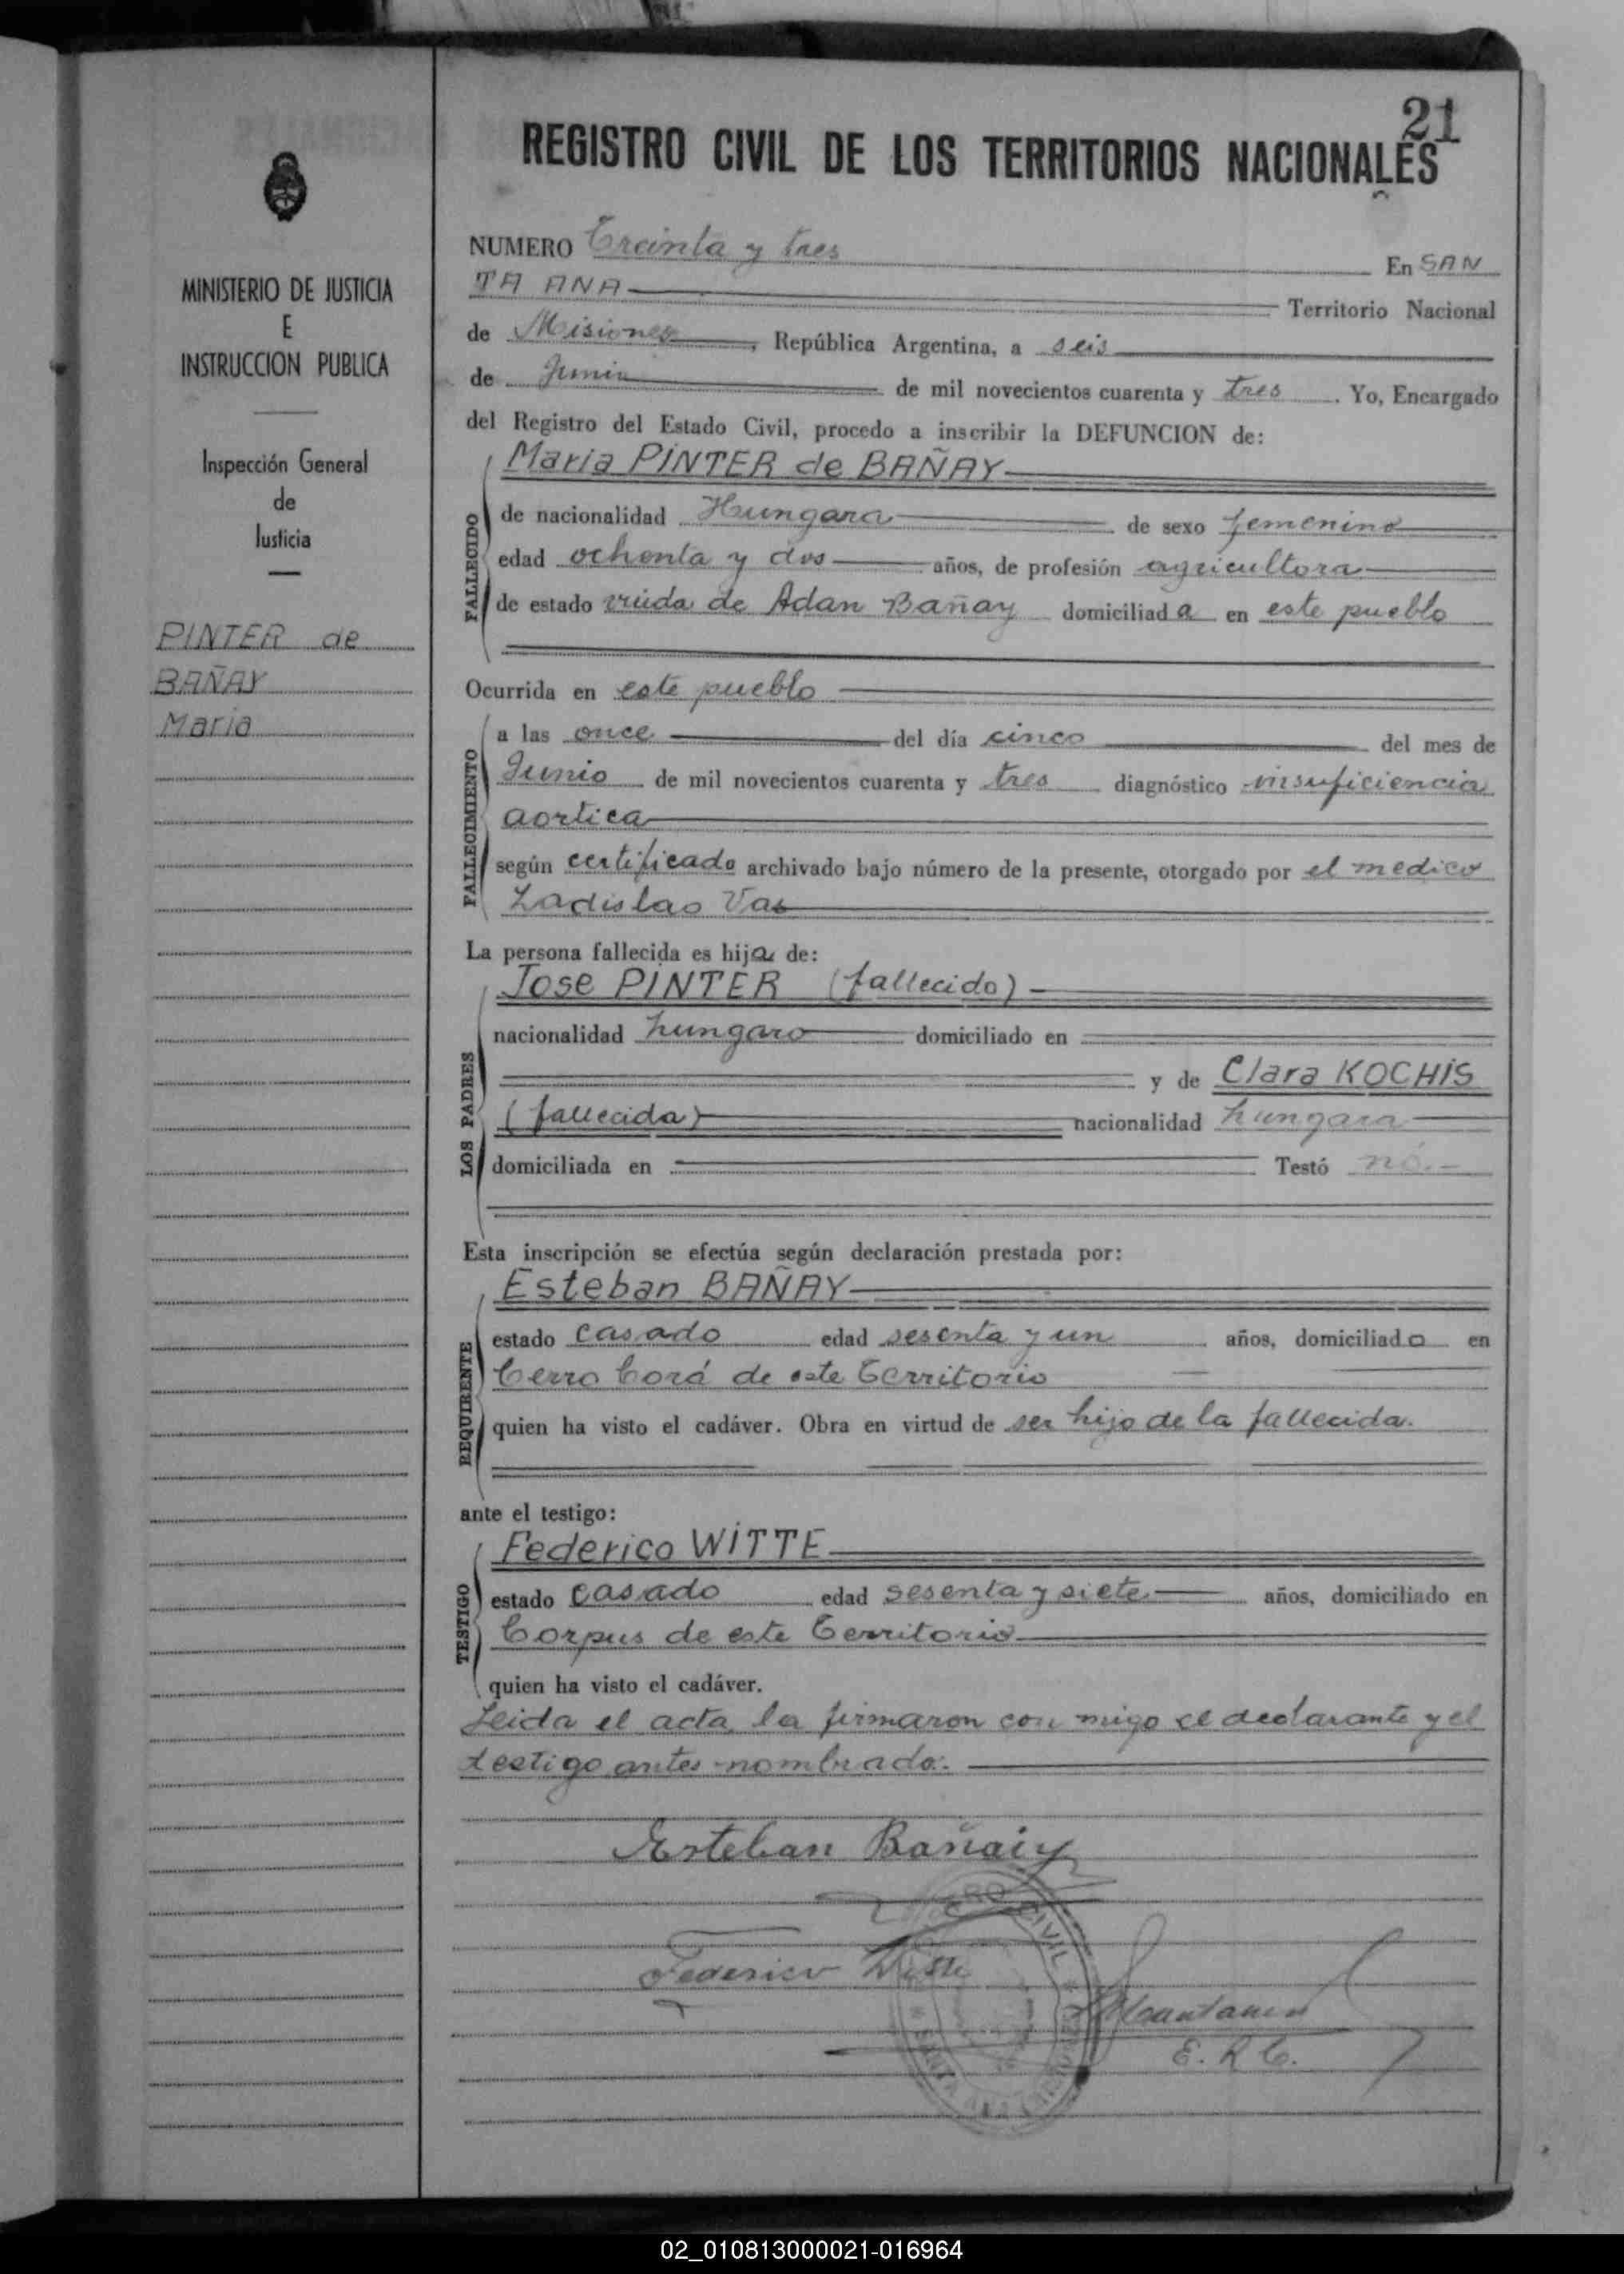 21
REGISTRO CIVIL DE LOS TERRITORIOS NACIONALES
MINISTERIO DE JUSTICIA
E
INSTRUCCION PUBLICA
Inspección General
de
Justicia
PINTER de
BAÑAY
Maria
NUMERO Treinta y tres En SAN
TA ANA Territorio Nacional
de Misiones, República Argentina, a seis
de Junio de mil novecientos cuarenta y tres. Yo, Encargado
del Registro del Estado Civil, procedo a inscribir la DEFUNCION de:
FALLECIDO
Maria PINTER de BAÑAY
de nacionalidad Hungara de sexo femenino
edad ochenta y dos años, de profesión agricultora
de estado viuda de Adan Bañay domiciliada en este pueblo
Ocurrida en este pueblo
FALLECIMIENTO
a las once del día cinco del mes de
Junio de mil novecientos cuarenta y tres diagnóstico insuficiencia
aortica
según certificado archivado bajo número de la presente, otorgado por el medico
Ladislao Vas
La persona fallecida es hija de:
LOS PADRES
Jose PINTER (fallecido)
nacionalidad hungaro domiciliado en
y de Clara KOCHIS
(fallecida) nacionalidad hungara
domiciliada en Testó no.-
Esta inscripción se efectúa según declaración prestada por:
REQUIRENTE
Esteban BAÑAY
estado casado edad sesenta y un años, domiciliado en
Cerro Corá de este Territorio
quien ha visto el cadáver. Obra en virtud de ser hijo de la fallecida.
ante el testigo:
TESTIGO
Federico WITTE
estado casado edad sesenta y siete años, domiciliado en
Corpus de este Territorio
quien ha visto el cadáver.
Leida el acta la firmaron con migo el declarante y el
testigo antes nombrado.
Esteban Bañaiy
Federico Witte
E. R. C.
02_010813000021-016964